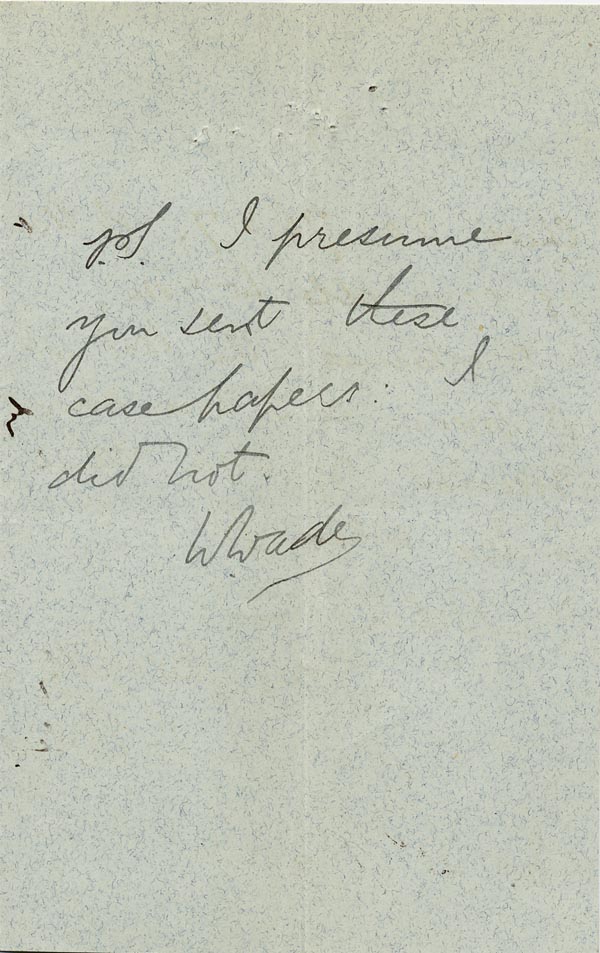 p.S. I presume
you sent these
case papers. I
did not.
WWade